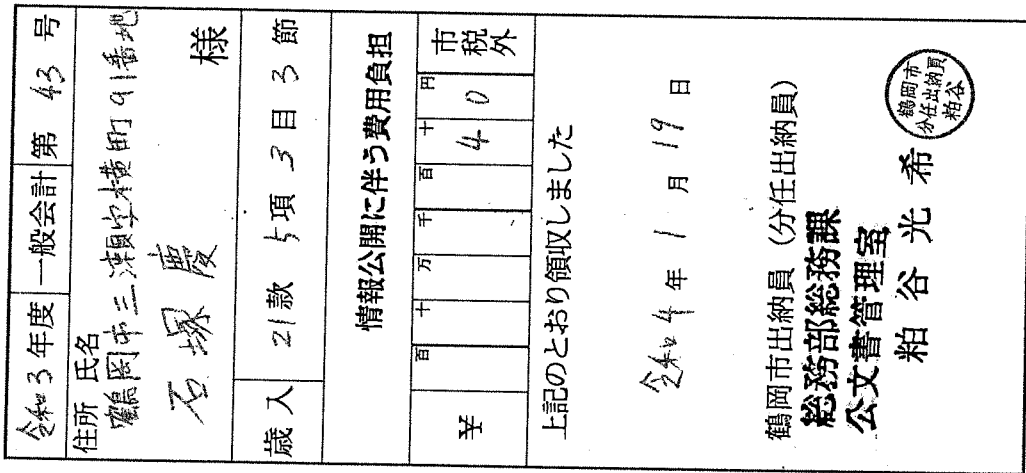 令和3年度 一般会計 第 43 号
住所 氏名
鶴岡市三瀬字横町91番地
石塚 慶 様
歳入 21款 5項 3目 3節
情報公開に伴う費用負担
¥ 百 十 万 千 百 十 円 市税外
4 0
上記のとおり領収しました
令和4年 1月 19日
鶴岡市出納員(分任出納員)
総務部総務課
公文書管理室
粕谷光希
鶴岡市
分任出納員
粕谷